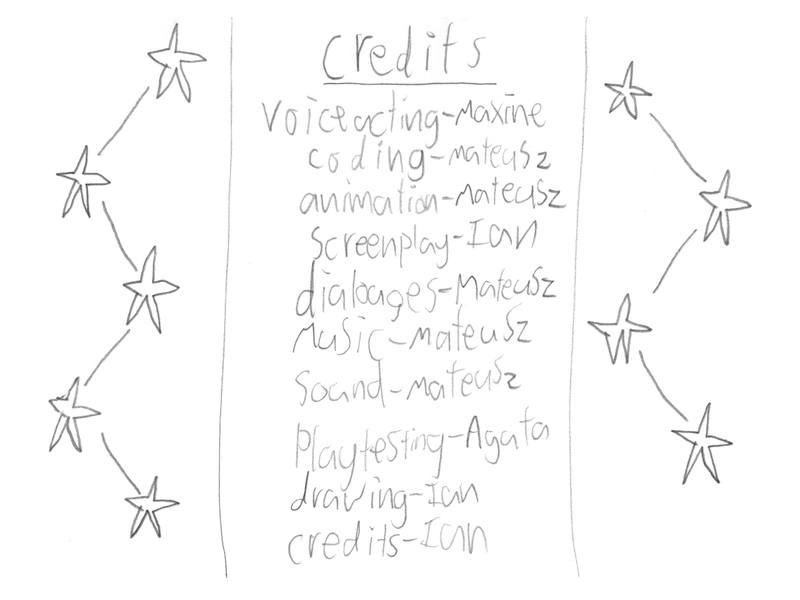 Credits
voiceacting-Maxine
coding-mateusz
animation-Mateusz
Screenplay-Ian
dialouges-Mateusz
Music-mateusz
Sound-mateusz
Playtesting-Agata
drawing-Ian
credits-Ian